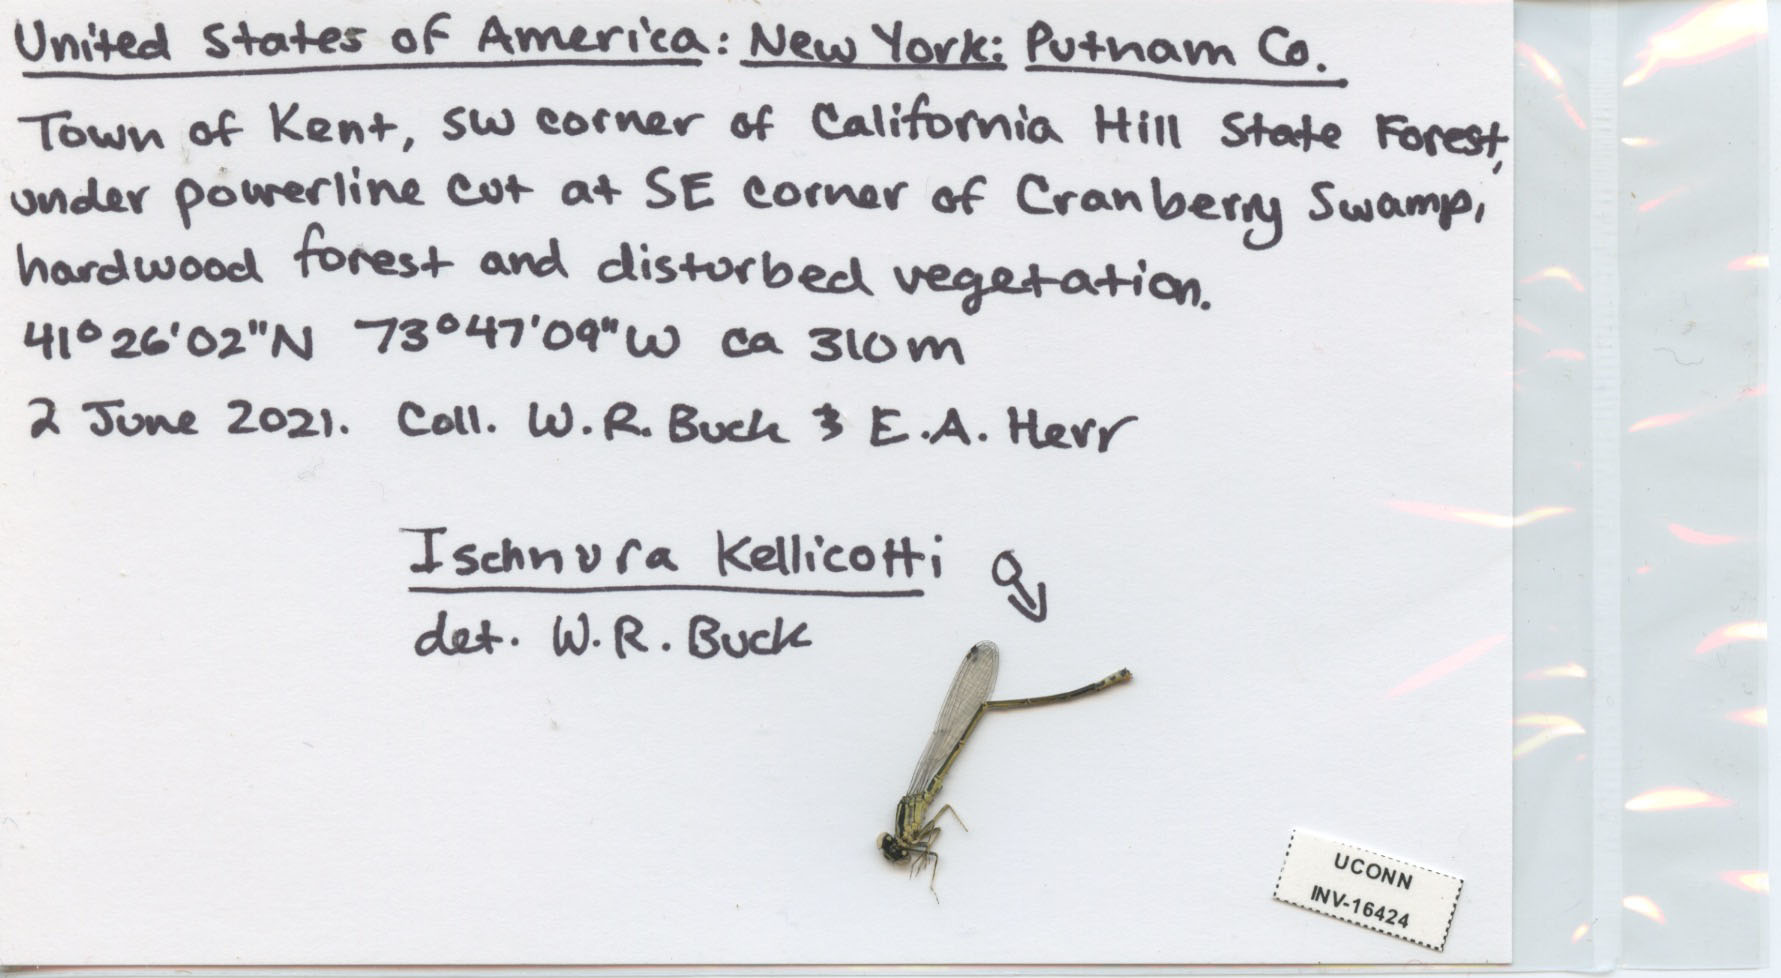 United States of America: New York: Putnam Co.
Town of Kent, SW corner of California Hill State Forest,
under powerline cut at SE corner of Cranberry Swamp,
hardwood forest and disturbed vegetation.
41°26'02"N 73°47'09"W ca 310m
2 June 2021. Coll. W.R. Buck & E.A. Herr
Ischnura Kellicotti ♂
det. W.R. Buck
UCONN
INV-16424